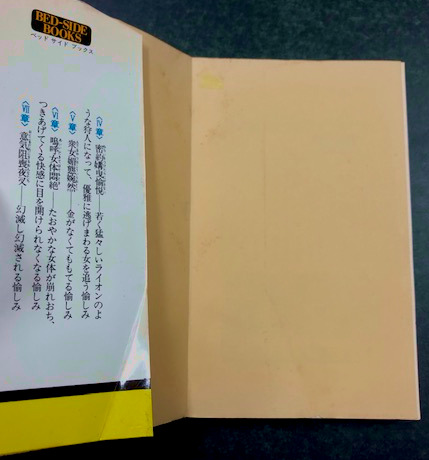 BED-SIDE
BOOKS
ベッド サイド ブックス
〈Ⅳ章〉密約嬌曳愉悦――若く猛々しいライオンのよ
うな狩人になって、優雅に逃げまわる女を追う愉しみ
〈Ⅴ章〉衆女媚態婉然――金がなくてももてる愉しみ
〈Ⅵ章〉嗚呼女体悶絶――たおやかな女体が崩れおち、
つきあげてくる快感に目を開けられなくなる愉しみ
〈Ⅶ章〉意気阻喪夜叉――幻滅し幻滅される愉しみ